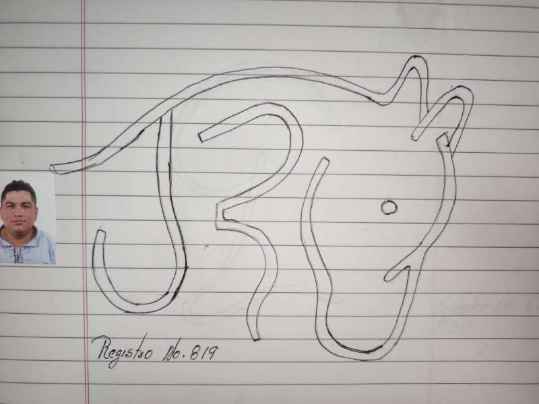 JR
Registro No. 819